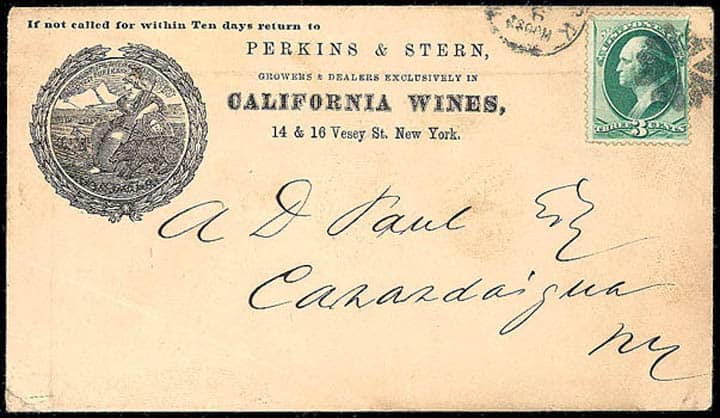 If not called for within Ten days return to
PERKINS & STERN,
GROWERS & DEALERS EXCLUSIVELY IN
CALIFORNIA WINES,
14 & 16 Vesey St. New York.
THREE 3 CENTS
A D Paul Esq
Canandaigua
NY